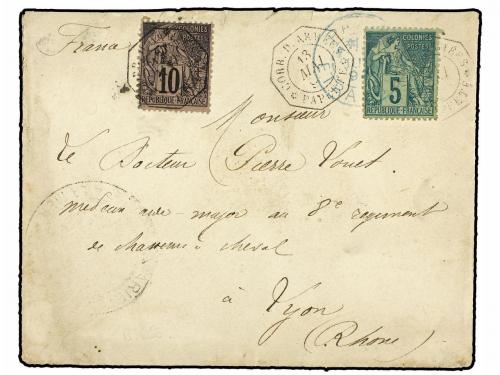 France
COLONIES POSTES
10
REPUBLIQUE FRANCAISE
CORR. D. ARMÉES
13
MAI
PAPEETE
COLONIES POSTES
5
REPUBLIQUE FRANCAISE
Monsieur
Le Docteur Pierre
medecin aide-major au 8e regiment
de chasseurs à cheval
à Lyon
(Rhone)